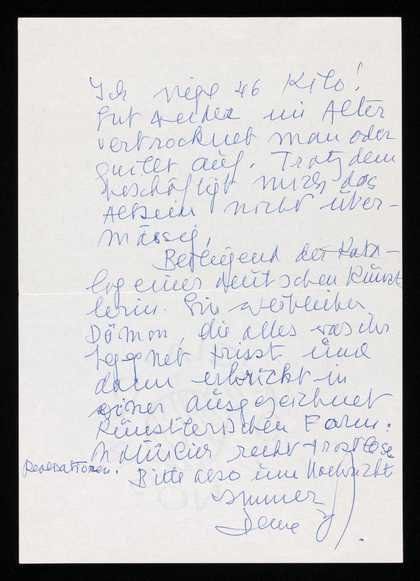 Ich wiege 46 Kilo!
Entweder im Alter
vertrocknet man oder
quillt auf. Trotzdem
beschäftigt mich das
Altsein nicht über-
mässig.
Beiliegend der Kata-
log einer deutschen Künst
lerin. Ein weiblicher
Dämon, die alles was ihr
begegnet frisst und
dann erbricht in
einer ausgezeichnet
künstlerischen Form.
Natürlich recht trostlose
Sensationen.
Bitte also um Nachricht
immer
Deine